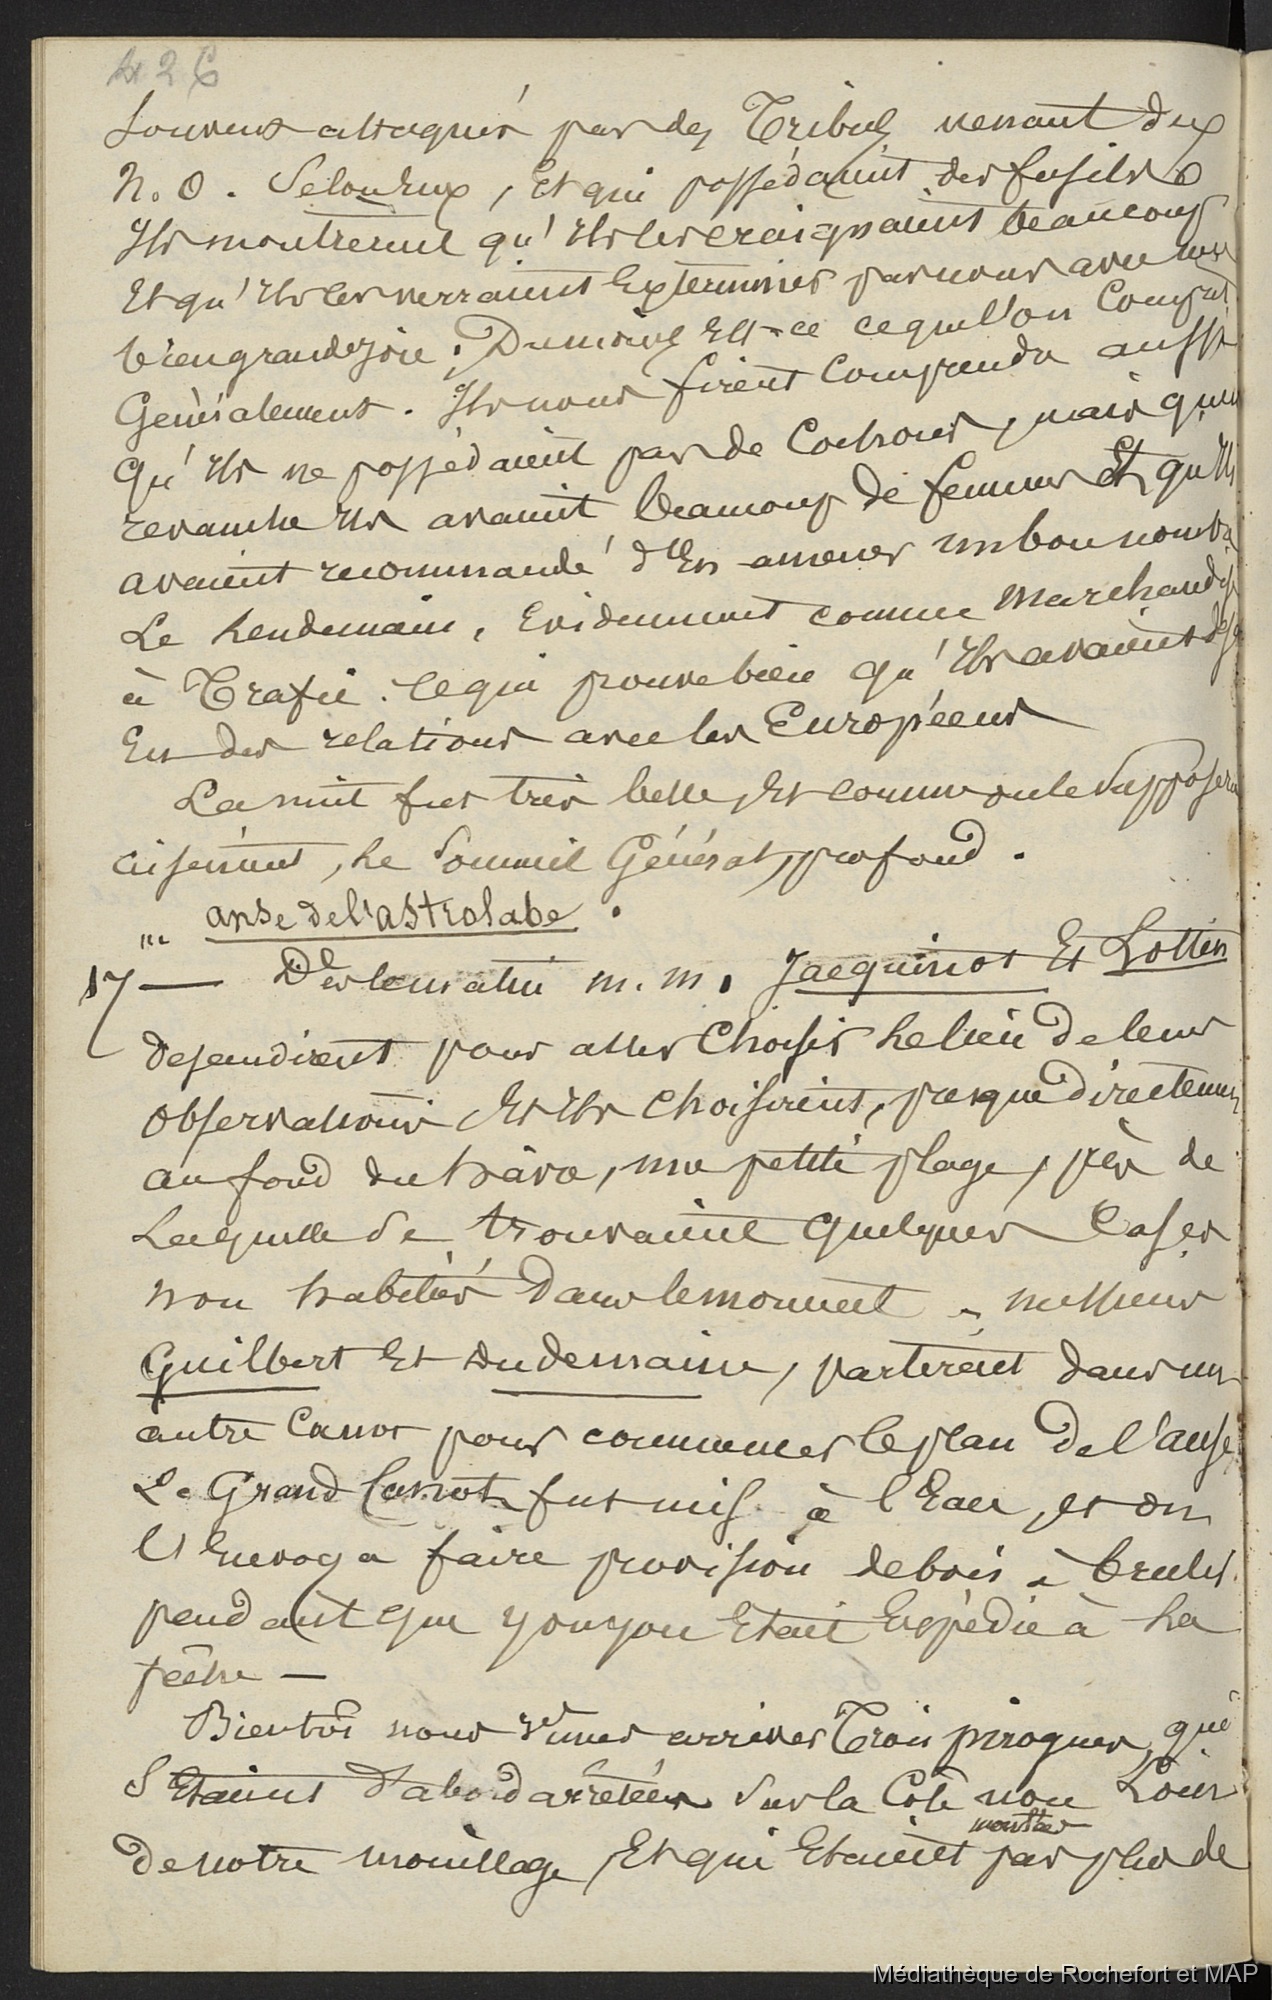 426
Souvent attaqués par des Tribus venant du
N. O. Selon Eux, Et qui possédaient des fusils
Ils montrèrent qu'ils les craignaient beaucoup
Et qu'ils les verraient Exterminés par nous avec une
bien grande joie; Du moins Est-ce ce que l'on Comprit
Généralement. Ils nous firent Comprendre aussi
Qu'ils ne possédaient pas de Cochons, mais qu'en
revanche ils avaient beaucoup de femmes Et qu'ils
avaient recommandé d'En amener un bon nombre
Le Lendemain, Evidemment comme Marchandise
à Trafic. Ce qui prouve bien qu'Ils avaient déjà
Eu des relations avec les Européens
La nuit fut très belle, Et comme on le Supposera
aisément, Le Sommeil Général, profond.
anse de l'astrolabe.
17 — Dès le matin m. m. Jacquinot Et Lottin
descendirent pour aller Choisir Le lieu de leurs
Observations Et Ils Choisirent, presque directement
au fond du hâvre, une petite plage, près de
Laquelle Se trouvaient Quelques Cases
non habitées Dans le moment - messieurs
Guilbert Et Dudemaine, partirent dans un
autre Canot pour commencer le plan De l'anse,
Le Grand Canot fut mis à l'Eau, et on
L'Envoya faire provision de bois à bruler.
pendant que yonyou Etait Expédié à La
pêche —
Bientôt nous vimes arriver Trois pirogues, qui
S'Etaient D'abord arrêtées Sur la Côte non Loin
montées
De notre mouillage, Et qui Etaient par plus de
Médiathèque de Rochefort et MAP